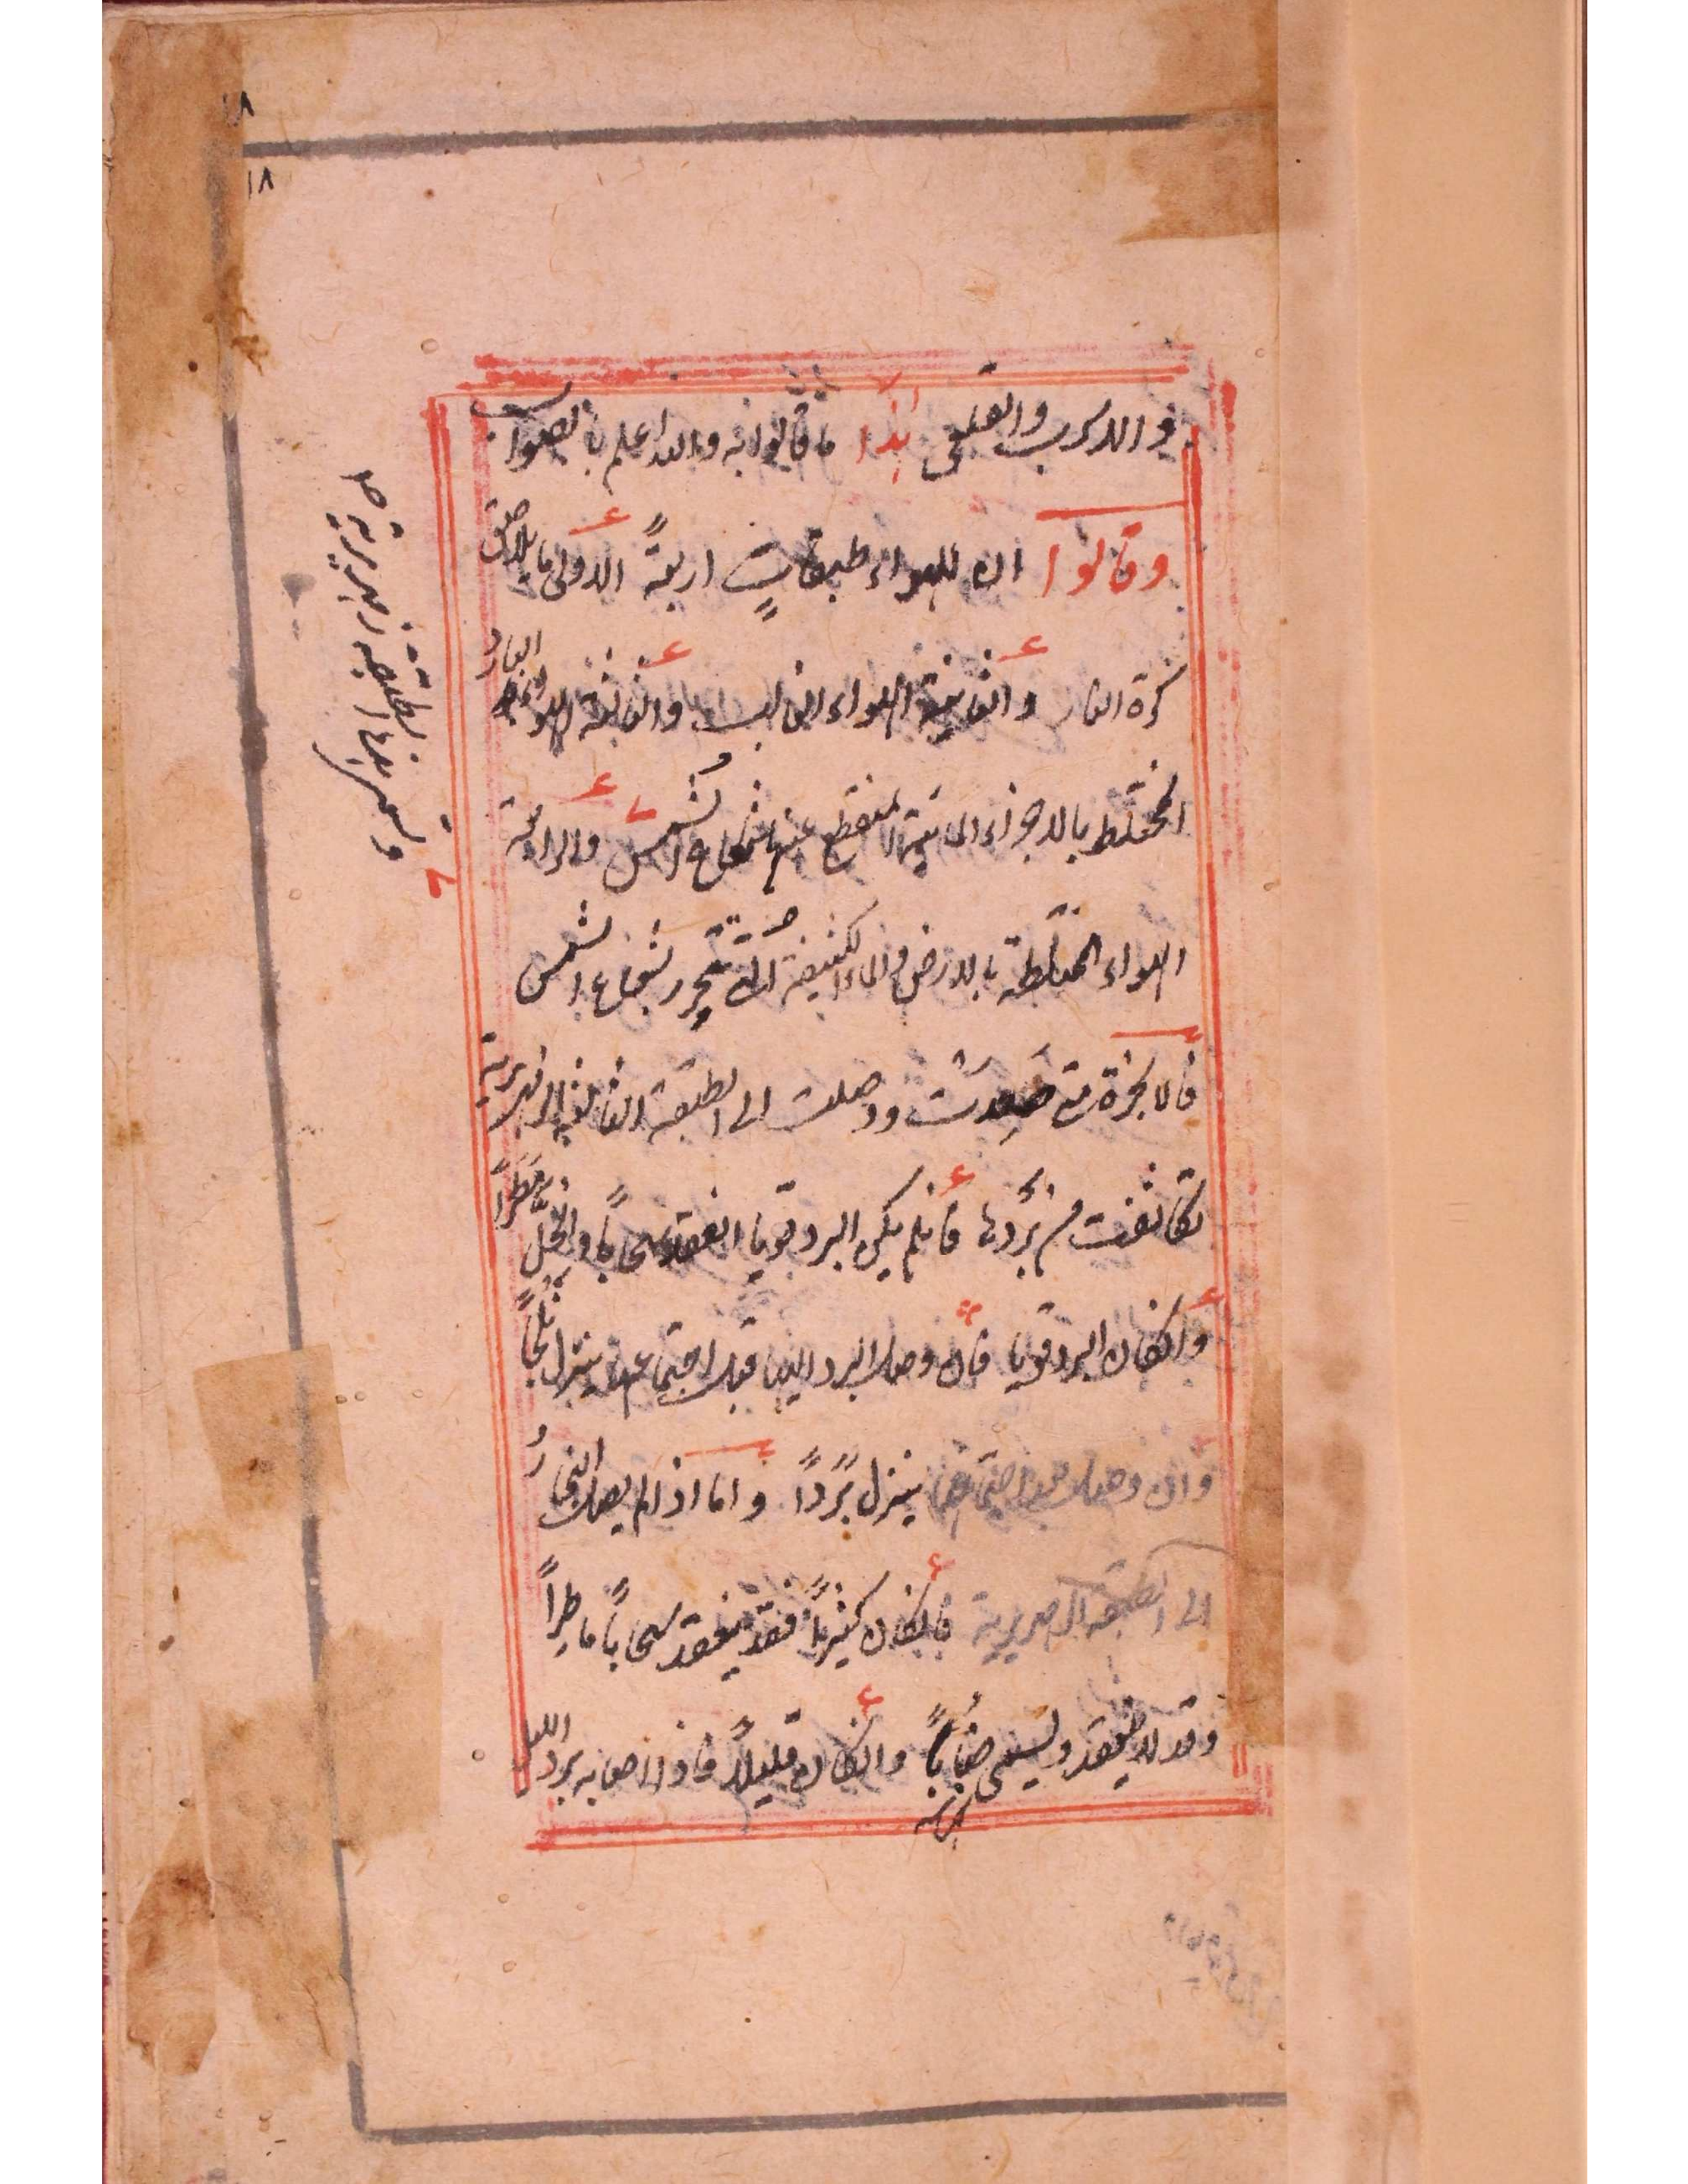 ١٨
١٨
والله اعلم بالصواب هذا ما قالوا به
وقالوا ان للهواء طبقاتٍ اربعةً الاولى ما يلاصق
كرة النار والثانية الهواء الغالب والثالثة الهواء البارد
المختلط بالاجزاء المائية المنقطع عنها شعاع الشمس والرابعة
الهواء المختلطة بالارض والماء الكثيفة التي تتحرر بشعاع الشمس
فالابخرة متى صَعِدَت ووصلت الى الطبقة الثالثة الزمهريرية
تكاثفت من بَردها فانلم يكن البرد قويا انعقد سحاباً وانحلَّ مَطَراً
وانكان البرد قويا فان وصل البرد اليها قبل اجتماعها ينزل ثلجاً
وان وصل بعد اجتماعها ينزل بَرَداً واما اذا لم يصل البخارُ
الى الطبقة الزمهريرية فانكان كثيراً فقد ينعقد سحاباً ماطراً
وقد لا ينعقد ويسمى ضَباباً وانكان قليلاً فاذا اصابه برد الليل
وتسمى بالطبقة الزمهريرية صح